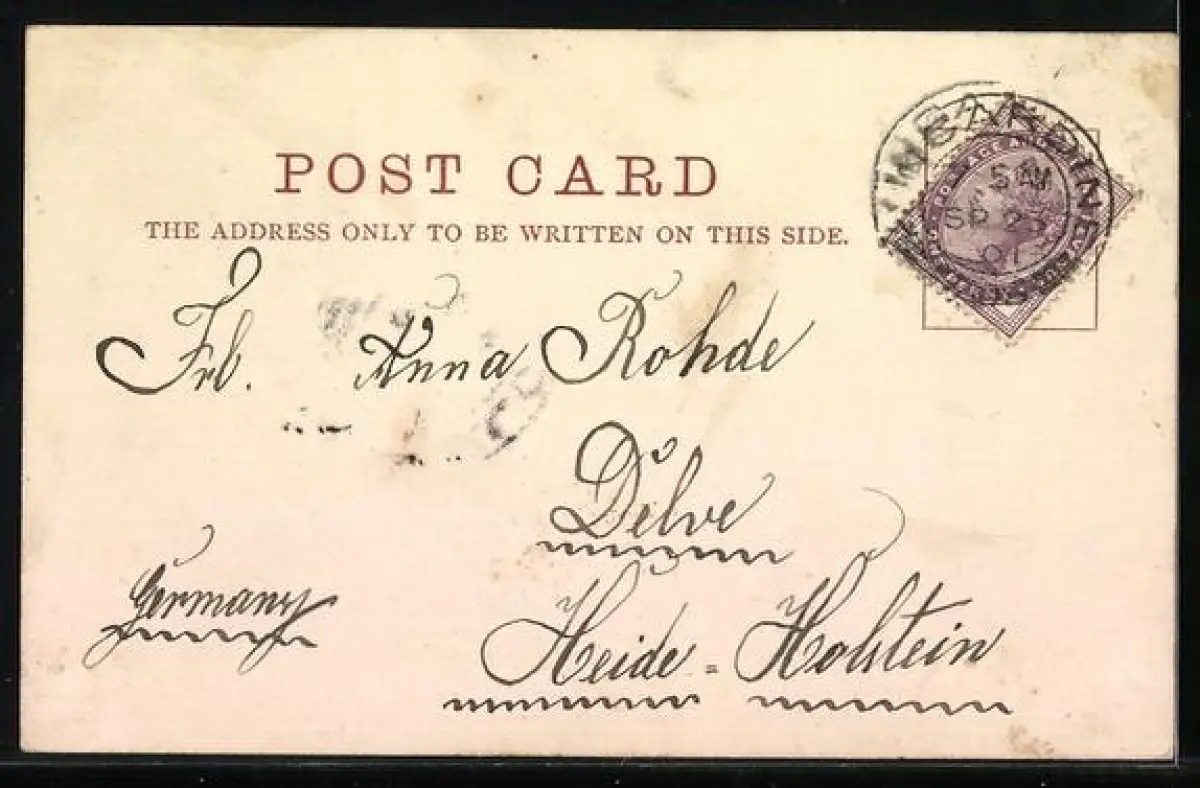 POST CARD
THE ADDRESS ONLY TO BE WRITTEN ON THIS SIDE.
5 AM
SP 2
01
Frl. Anna Rohde
Delve
Germany
Heide = Holstein